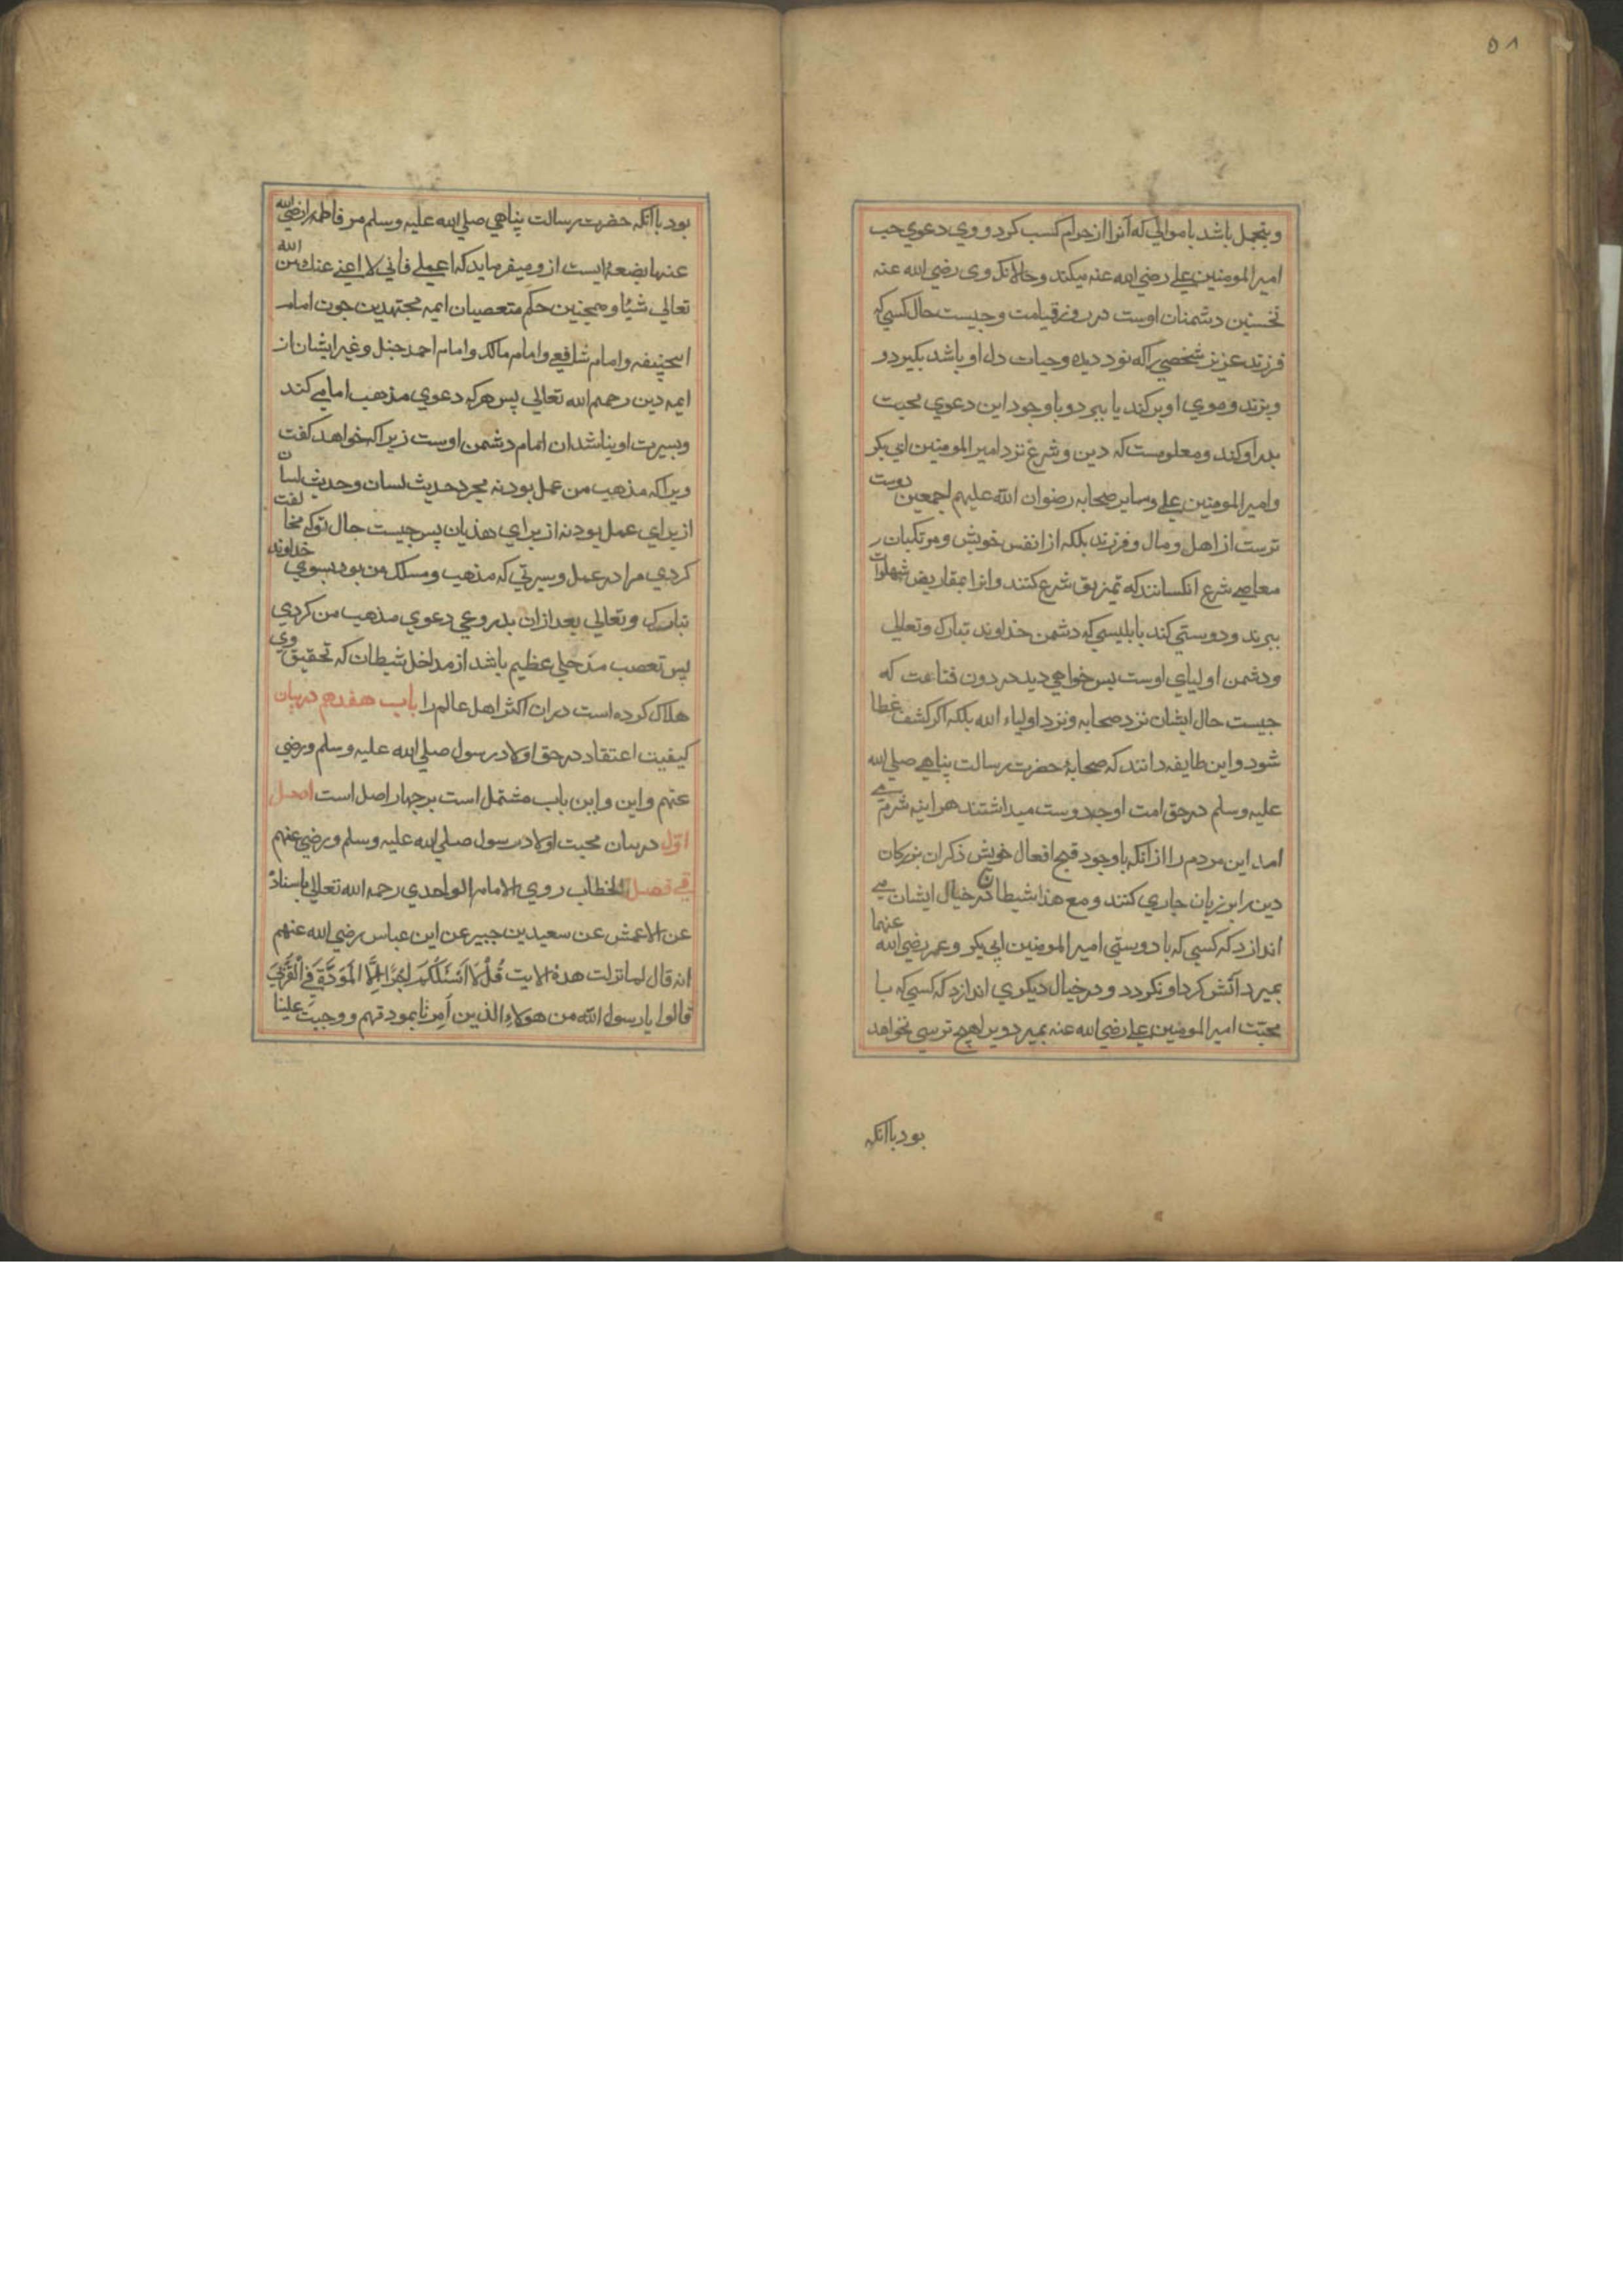 ۵۸
و بتجمل باشد باموالی که آنرا از حرام کسب کرد و وی دعوی حب
امیر المومنین علی رضی الله عنه میکند و حالانکه وی رضی الله عنه
نخستین دشمنان اوست در روز قیامت و جیست حال کسی که
فرزند عزیز شخصی را که نور دیده و حیات دل او باشد بگیرد و
و بزند و موی او برکند یا ببرد و باوجود این دعوی محبت
پدر او کند و معلومست که دین و شرع نزد امیر المومنین ابی بکر
و امیر المومنین علی و سایر صحابه رضوان الله علیهم اجمعین دوست
ترست از اهل و مال و فرزند بلکه از انفس خویش و مرتکبان ر
معاصی شرع انکسانند که تمزیق شرع کنند و انرا بمقاریض شهوات
ببرند و دوستی کند بابلیسی که دشمن خداوند تبارک و تعالی
و دشمن اولیای اوست پس خواهی دید در دون قناعت که
جیست حال ایشان نزد صحابه و نزد اولیاء الله بلکه اکر کشف غطا
شود و این طایفه دانند که صحابهٔ حضرت رسالت پناهی صلی الله
علیه و سلم در حق امت اوچه دوست میداشتند هراینه شرم می
امد این مردم را ازانکه باوجود قبح افعال خویش ذکر ان بزرکان
دین را بر زبان جاری کنند و مع هذا شیطان در خیال ایشان می
اندازد که کسی که با دوستی امیر المومنین ابی بکر و عمر رضی الله عنهما
بمیرد آتش کرد او نکردد و در خیال دیکری اندازد که کسی که با
محبت امیر المومنین علی رضی الله عنه بمیرد ویرا هیچ ترسی نخواهد
بود باانکه
بود باانکه حضرت رسالت پناهی صلی الله علیه و سلم مر فاطمه را رضی الله
عنها بضعهٔ ایست از و میفرماید که اعملی فانی لا اغنی عنك من الله
تعالی شیئا و همچنین حکم متعصبان ایمه مجتهدین جون امام
ابیحنیفه و امام شافعی و امام مالک و امام احمد حنبل و غیر ایشان از
ایمه دین رحمهم الله تعالی پس هر که دعوی مذهب امامی کند
و بسیرت او نباشد ان امام دشمن اوست زیرا که خواهد کفت
ویرا که مذهب من عمل بود نه مجرد حدیث لسان و حدیث لسان
از برای عمل بود نه از برای هذیان پس جیست حال تو که مخالفت
کردی مرا در عمل و سیرتی که مذهب و مسلک من بود بسوی خداوند
تبارک و تعالی بعد ازان بدروغی دعوی مذهب من کردی
پس تعصب مدخلی عظیم باشد از مداخل شیطان که تحقیق وی
هلاک کرده است دران اکثر اهل عالم را باب هفدهم در بیان
کیفیت اعتقاد در حق اولاد رسول صلی الله علیه و سلم و رضی
عنهم و این و این باب مشتمل است بر جهار اصل است اصل
اوّل در بیان محبت اولاد رسول صلی الله علیه و سلم و رضی عنهم
فی فصل الخطاب روی الامام الواحدی رحمه الله تعالی باسناده
عن الاعمش عن سعید بن جبیر عن ابن عباس رضی الله عنهم
انه قال لما نزلت هذه الایت قُلْ لَا اَسْئَلُكُمْ اَجْرًا اِلَّا الْمَوَدَّةَ فِی الْقُرْبٰی
قالوا یا رسول الله من هولاء الذین اُمِرنَا بمودتهم و وجبت علینا